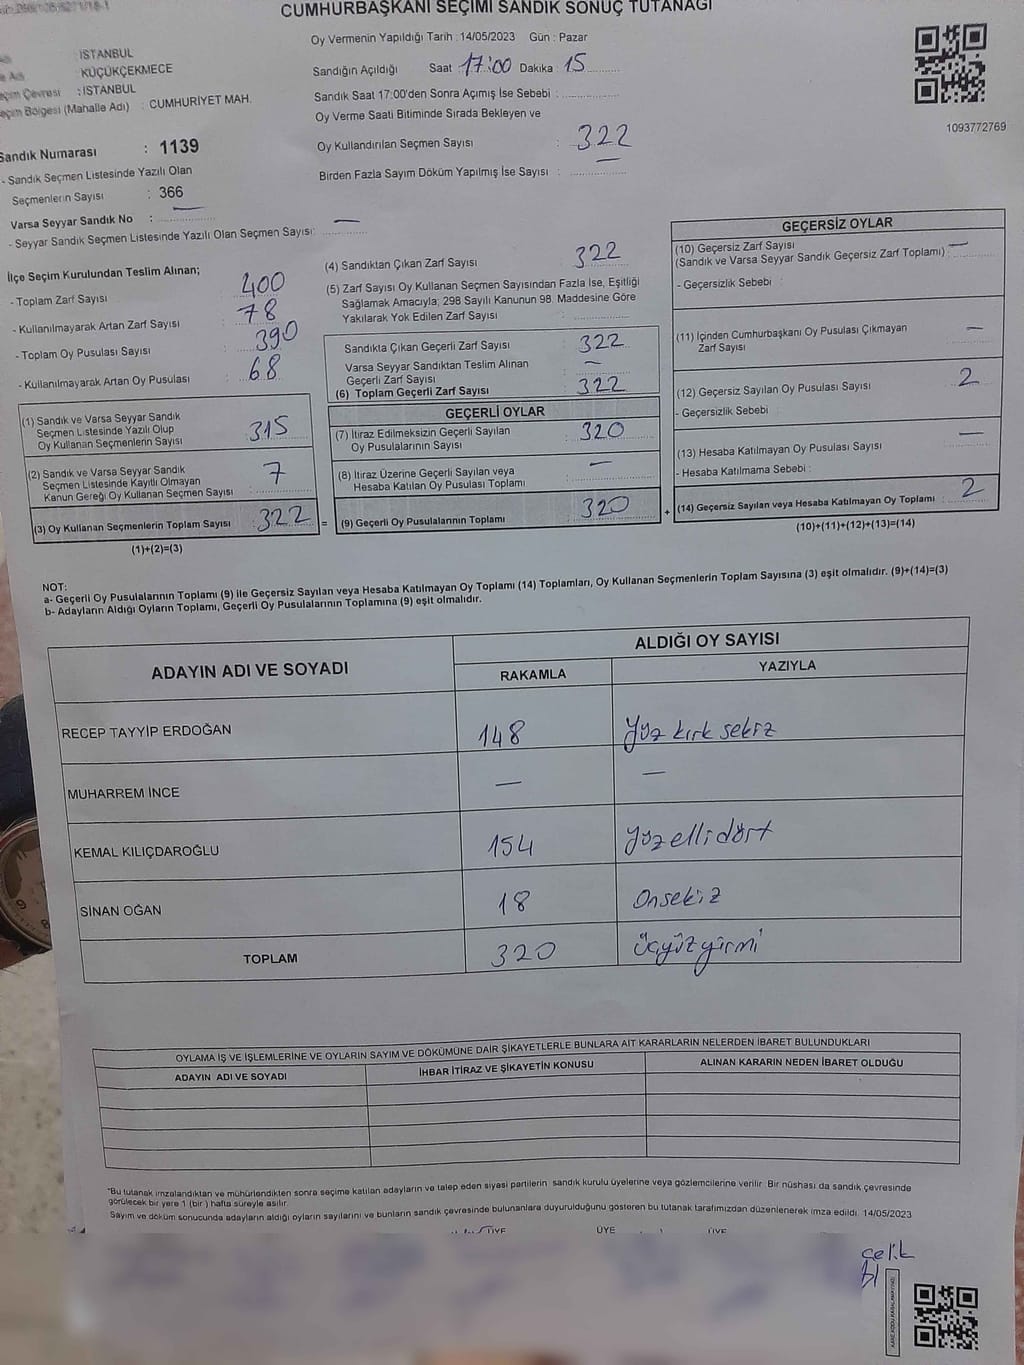 CUMHURBAŞKANI SEÇİMİ SANDIK SONUÇ TUTANAĞI
: İSTANBUL
Adı : KÜÇÜKÇEKMECE
Seçim Çevresi : İSTANBUL
Seçim Bölgesi (Mahalle Adı) : CUMHURİYET MAH.
Oy Vermenin Yapıldığı Tarih : 14/05/2023 Gün : Pazar
Sandığın Açıldığı Saat 17:00 Dakika 15
Sandık Saat 17:00'den Sonra Açımış İse Sebebi :
Oy Verme Saati Bitiminde Sırada Bekleyen ve
Oy Kullandırılan Seçmen Sayısı : 322
Birden Fazla Sayım Döküm Yapılmış İse Sayısı : —
1093772769
Sandık Numarası : 1139
- Sandık Seçmen Listesinde Yazılı Olan
Seçmenlerin Sayısı : 366
Varsa Seyyar Sandık No : —
- Seyyar Sandık Seçmen Listesinde Yazılı Olan Seçmen Sayısı: —
İlçe Seçim Kurulundan Teslim Alınan;
- Toplam Zarf Sayısı : 400
- Kullanılmayarak Artan Zarf Sayısı : 78
- Toplam Oy Pusulası Sayısı : 390
- Kullanılmayarak Artan Oy Pusulası : 68
(1) Sandık ve Varsa Seyyar Sandık
Seçmen Listesinde Yazılı Olup
Oy Kullanan Seçmenlerin Sayısı : 315
(2) Sandık ve Varsa Seyyar Sandık
Seçmen Listesinde Kayıtlı Olmayan
Kanun Gereği Oy Kullanan Seçmen Sayısı : 7
(3) Oy Kullanan Seçmenlerin Toplam Sayısı : 322 =
(1)+(2)=(3)
(4) Sandıktan Çıkan Zarf Sayısı : 322
(5) Zarf Sayısı Oy Kullanan Seçmen Sayısından Fazla İse, Eşitliği
Sağlamak Amacıyla; 298 Sayılı Kanunun 98. Maddesine Göre
Yakılarak Yok Edilen Zarf Sayısı :
Sandıkta Çıkan Geçerli Zarf Sayısı : 322
Varsa Seyyar Sandıktan Teslim Alınan
Geçerli Zarf Sayısı : —
(6) Toplam Geçerli Zarf Sayısı : 322
GEÇERLİ OYLAR
(7) İtiraz Edilmeksizin Geçerli Sayılan
Oy Pusulalarının Sayısı : 320
(8) İtiraz Üzerine Geçerli Sayılan veya
Hesaba Katılan Oy Pusulası Toplamı : —
(9) Geçerli Oy Pusulalarının Toplamı : 320 +
GEÇERSİZ OYLAR
(10) Geçersiz Zarf Sayısı
(Sandık ve Varsa Seyyar Sandık Geçersiz Zarf Toplamı) : —
- Geçersizlik Sebebi :
(11) İçinden Cumhurbaşkanı Oy Pusulası Çıkmayan
Zarf Sayısı : —
(12) Geçersiz Sayılan Oy Pusulası Sayısı : 2
- Geçersizlik Sebebi :
(13) Hesaba Katılmayan Oy Pusulası Sayısı : —
- Hesaba Katılmama Sebebi :
(14) Geçersiz Sayılan veya Hesaba Katılmayan Oy Toplamı : 2
(10)+(11)+(12)+(13)=(14)
NOT:
a- Geçerli Oy Pusulalarının Toplamı (9) ile Geçersiz Sayılan veya Hesaba Katılmayan Oy Toplamı (14) Toplamları, Oy Kullanan Seçmenlerin Toplam Sayısına (3) eşit olmalıdır. (9)+(14)=(3)
b- Adayların Aldığı Oyların Toplamı, Geçerli Oy Pusulalarının Toplamına (9) eşit olmalıdır.
ADAYIN ADI VE SOYADI ALDIĞI OY SAYISI
RAKAMLA YAZIYLA
RECEP TAYYİP ERDOĞAN 148 Yüz kırk sekiz
MUHARREM İNCE — —
KEMAL KILIÇDAROĞLU 154 Yüzellidört
SİNAN OĞAN 18 Onsekiz
TOPLAM 320 Üçyüzyirmi
OYLAMA İŞ VE İŞLEMLERİNE VE OYLARIN SAYIM VE DÖKÜMÜNE DAİR ŞİKAYETLERLE BUNLARA AİT KARARLARIN NELERDEN İBARET BULUNDUKLARI
ADAYIN ADI VE SOYADI İHBAR İTİRAZ VE ŞİKAYETİN KONUSU ALINAN KARARIN NEDEN İBARET OLDUĞU
"Bu tutanak imzalandıktan ve mühürlendikten sonra seçime katılan adayların ve talep eden siyasi partilerin sandık kurulu üyelerine veya gözlemcilerine verilir. Bir nüshası da sandık çevresinde
görülecek bir yere 1 (bir) hafta süreyle asılır.
Sayım ve döküm sonucunda adayların aldığı oyların sayılarını ve bunların sandık çevresinde bulunanlara duyurulduğunu gösteren bu tutanak tarafımızdan düzenlenerek imza edildi. 14/05/2023
ÜYE ÜYE ÜYE
Çelik